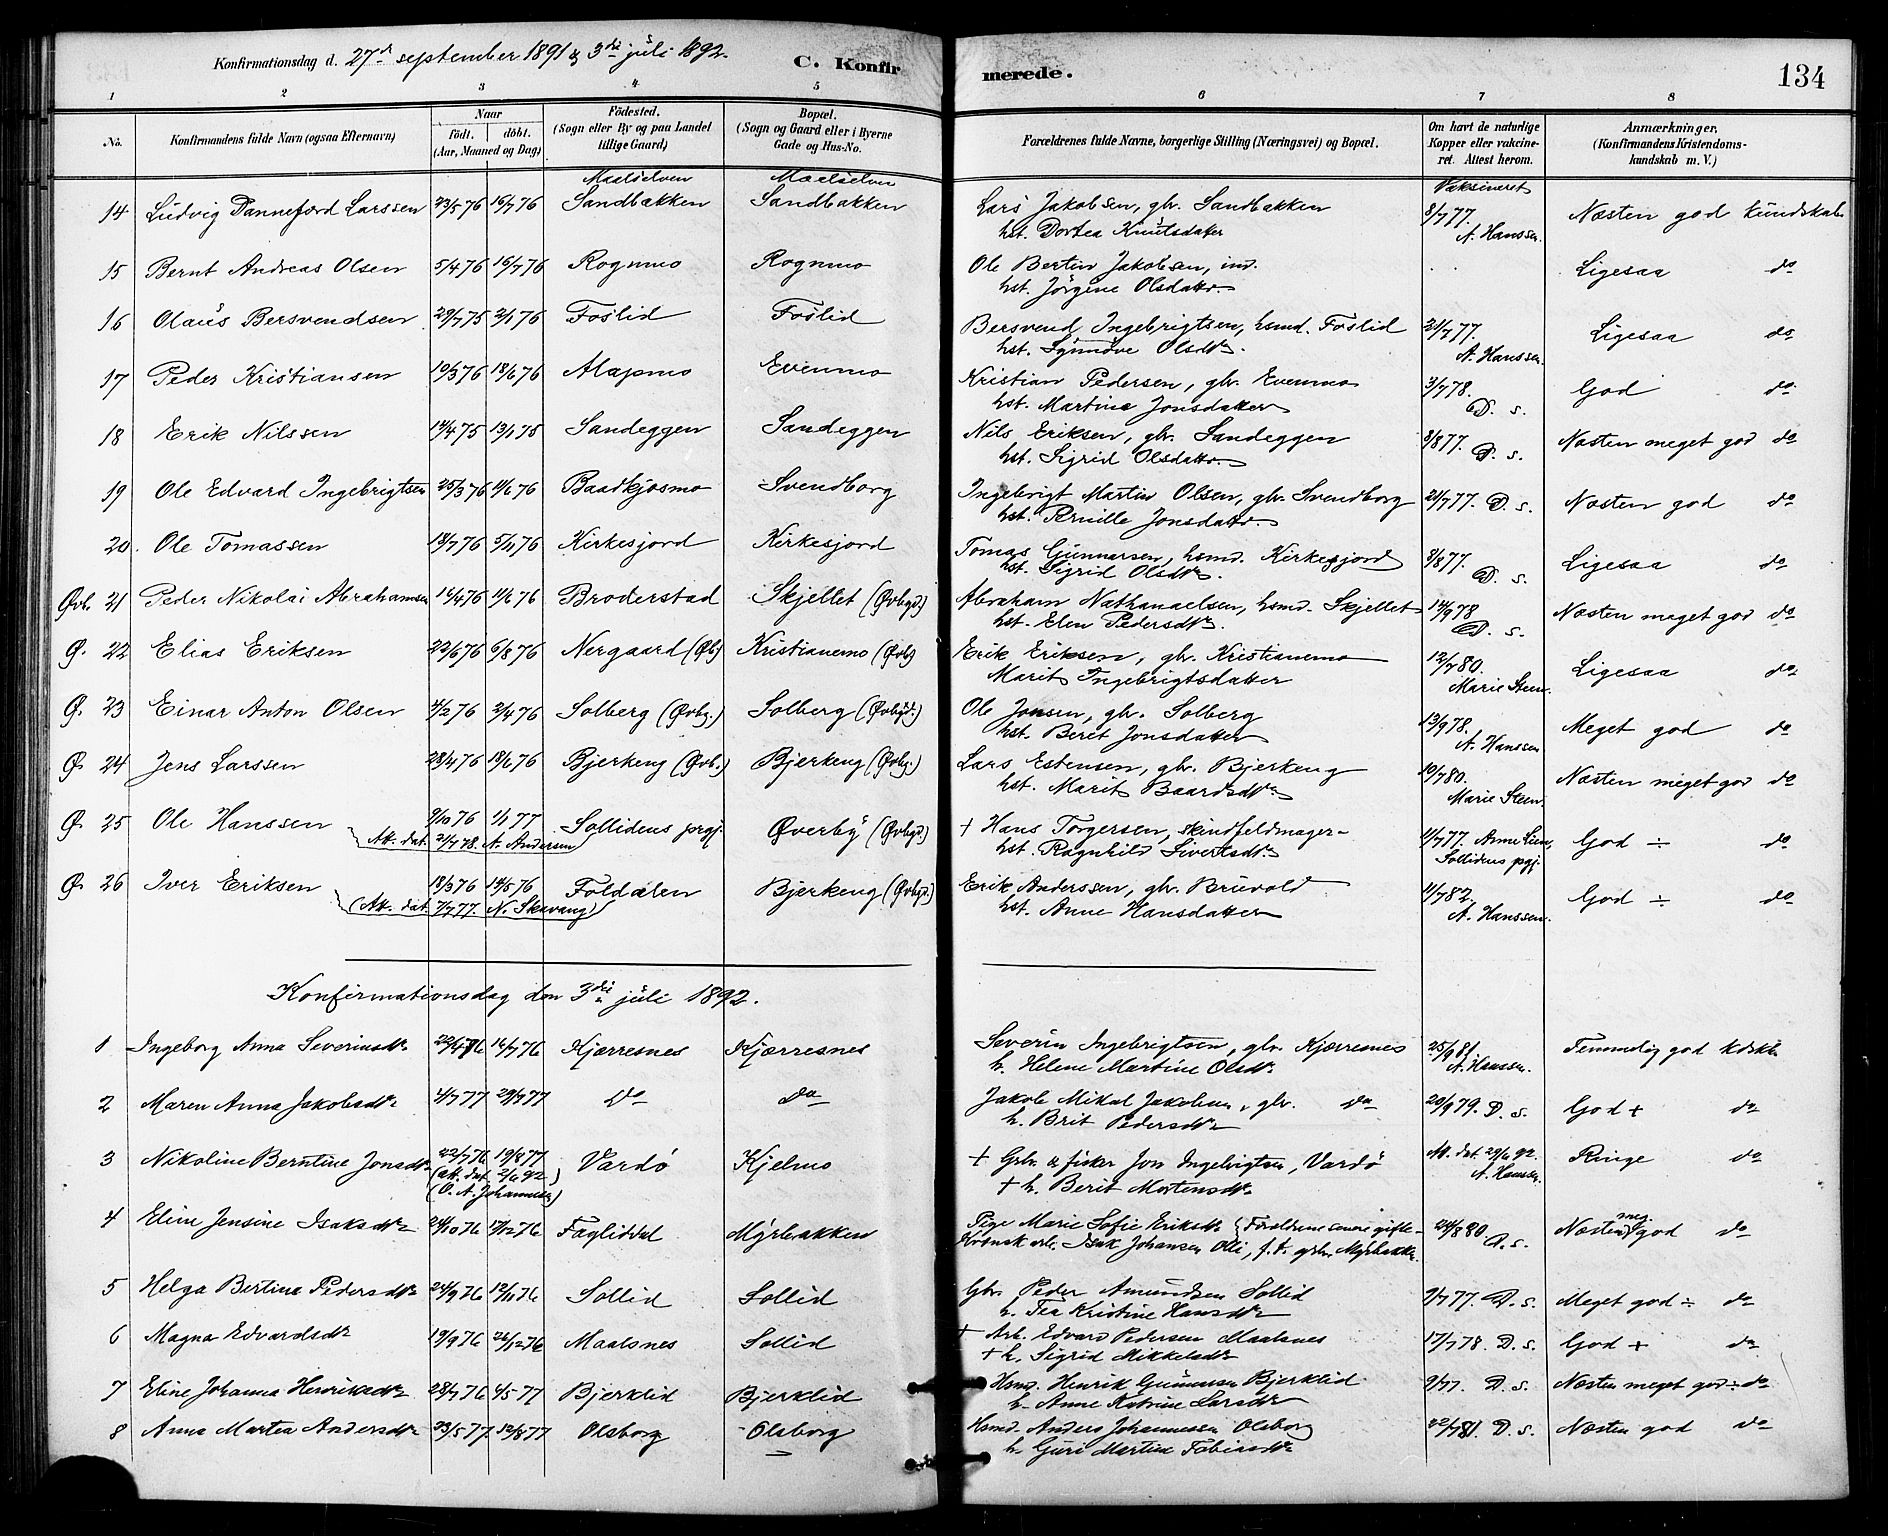 Konfirmationsdag d. 27de september 1891 & 3die juli 1892. C. Konfirmerede. 134
1 2 3 4 5 6 7 8
No. Konfirmandens fulde Navn (ogsaa Efternavn) Naar født. døbt. (Aar, Maaned og Dag) Födested. (Sogn eller By og paa Landet tillige Gaard) Bopæl. (Sogn og Gaard eller i Byerne Gade og Hus-No. Forældrenes fulde Navne, borgerlige Stilling (Næringsvei) og Bopæl. Om havt de naturlige Kopper eller vakcineret. Attest herom. Anmærkninger. (Konfirmandens Kristendomskundskab m. V.)
Maalselven Maalselven Vaksineret
14 Ludvig Dannefærd Larssen 23/5 76 16/7 76 Sandbakken Sandbakken Lars Jakobsen, gbr. Sandbakken 8/7 77. Næsten god kundskab
hst. Dortea Knutsdatter A. Hanssen.
15 Bernt Andreas Olsen 5/4 76 16/7 76 Rognmo Rognmo Ole Bertin Jakobsen, ind. Ligesaa do
hst. Jörgine Olsdattr.
16 Olaus Bersvendsen 29/7 75 2/1 76 Foslid Foslid Bersvend Ingebrigtsen, hsmd. Foslid 21/7 77. Ligesaa do
hst. Synnöve Olsdtr. A. Hanssen.
17 Peder Kristiansen 10/3 76 18/6 76 Alapmo Evenmo Kristian Pedersen, gbr. Evenmo 3/7 78. God do
hst. Martina Jonsdatter D. s.
18 Erik Nilssen 14/4 75 13/1 75 Sandeggen Sandeggen Nils Eriksen, gbr. Sandeggen 3/8 77. Næsten meget god do
hst. Sigrid Olsdattr. D. s.
19 Ole Edvard Ingebrigtsen 25/3 76 1/6 76 Baadkjosmo Svendborg Ingebrigt Martin Olsen, gbr. Svendborg 21/7 77. D. s. Næsten god do
hst. Pernille Jonsdattr.
20. Ole Tomassen 18/7 76 5/11 76 Kirkesjord Kirkesjord Tomas Gunnarsen, hsmd. Kirkesjord 3/8 77. Ligesaa do
hst. Sigrid Olsdtr. D. s.
Øvb. 21 Peder Nikolai Abrahamsen 14/4 76 11/6 76 Broderstad Skjellet (Øvbgd.) Abraham Nathanaelsen, hsmd. Skjellet 12/9 78 Næsten meget god do
hst. Elen Pedersdtr. D. s.
Ø. 22 Elias Eriksen 22/6 76 6/8 76 Nergaard (Øb) Kristianemo (Øvb) Erik Eriksen, gbr. Kristianemo 12/7 80. Ligesaa do
Marit Ingebrigtsdatter Marie Steen.
Ø. 23 Einar Anton Olsen 2/2 76 2/4 76 Solberg (Øvbg.) Solberg (Øvbgd.) Ole Jonsen, gbr. Solberg 13/9 78. Meget god do
hst. Berit Jonsdatter A. Hanssen
Ø. 24 Jens Larssen 28/4 76 18/6 76 Bjerkeng (Øvb.) Bjerkeng (Øvbg.) Lars Estensen, gbr. Bjerkeng 10/7 80. Næsten meget god do
hst. Marit Baardsdtr. Marie Steen.
Ø. 25 Ole Hanssen 9/10 76 1/1 77 Sollidens prgj. Øverby (Øvbgd.) + Hans Torgersen, skindfeldmager 11/7 77. Anne Lien, God ÷ do
Att. dat. 21/7 78. A. Andersen hst. Ragnhild Sivertsdtr. Sollidens pgj.
Ø. 26 Iver Eriksen 18/3 76 14/5 76 Foldalen Bjerkeng (Øvbgd.) Erik Anderssen, gbr. Bruvold 11/7 82. God ÷ do
(Att. dat. 7/7 77. N. Skavang) hst. Anne Hansdatter A. Hanssen.
Konfirmationsdag den 3die juli 1892.
1 Ingeborg Anna Severinsdtr. 22/4 76 16/7 76 Kjærresnes Kjærresnes Severin Ingebrigtsen, gbr. Kjærresnes 25/9 81 Temmelig god kdskb
h. Helene Martine Olsdtr. A. Hanssen.
2 Maren Anna Jakobsdtr. 4/7 77 29/7 77 do do Jakob Mikal Jakobsen, gbr. do 20/9 79. D. s. God + do
h. Brit Pedersdtr
3 Nikoline Berntine Jonsdtr. 22/7 76 19/8 77 Vardö Kjelmo + Gbr. & fisker Jon Ingebrigtsen, Vardö Att. dat. 29/6 92. Ringe do
(att. dat. 2/6 92) + h. Berit Mortensdtr. A. Hanssen.
(O. A. Johannesen)
4 Eline Jensine Isaksdtr. 24/10 76 17/12 76 Fagliddal Myrbakken Pige Marie Sofie Eriksdtr. (Forældrene senere gifte. 24/8 80 D. s. Næsten meg. god do
Kvænsk arb. Isak Johansen Olli, f. t. gbr. Myrbakken.
5 Helga Bertina Pedersdtr. 24/9 76 12/11 76 Sollid Sollid Gbr. Peder Amundsen Sollid 9/7 77. D. s. Meget god ÷ do
h. Tea Kristine Hansdtr
6 Magna Edvardsdtr 19/9 76 26/12 76 Maalsnes Sollid + Arb. Edvard Pedersen Maalsnes 17/7 78. D. s. God + do
+ h. Sigrid Mikkelsdtr
7 Eline Johanna Henriksdtr 28/7 76 4/5 77 Bjerklid Bjerklid Hsmd. Henrik Gunnarsen Bjerklid 9/77. D. s. Næsten meget god ÷ do
h. Anne Katrine Larsdtr
8 Anna Martea Andersdtr. 23/5 77. 12/8 77 Olsborg Olsborg Hsmd. Anders Johannessen Olsborg 22/7 81. D. s. Næsten god do
h. Guri Martine Tobiasdtr